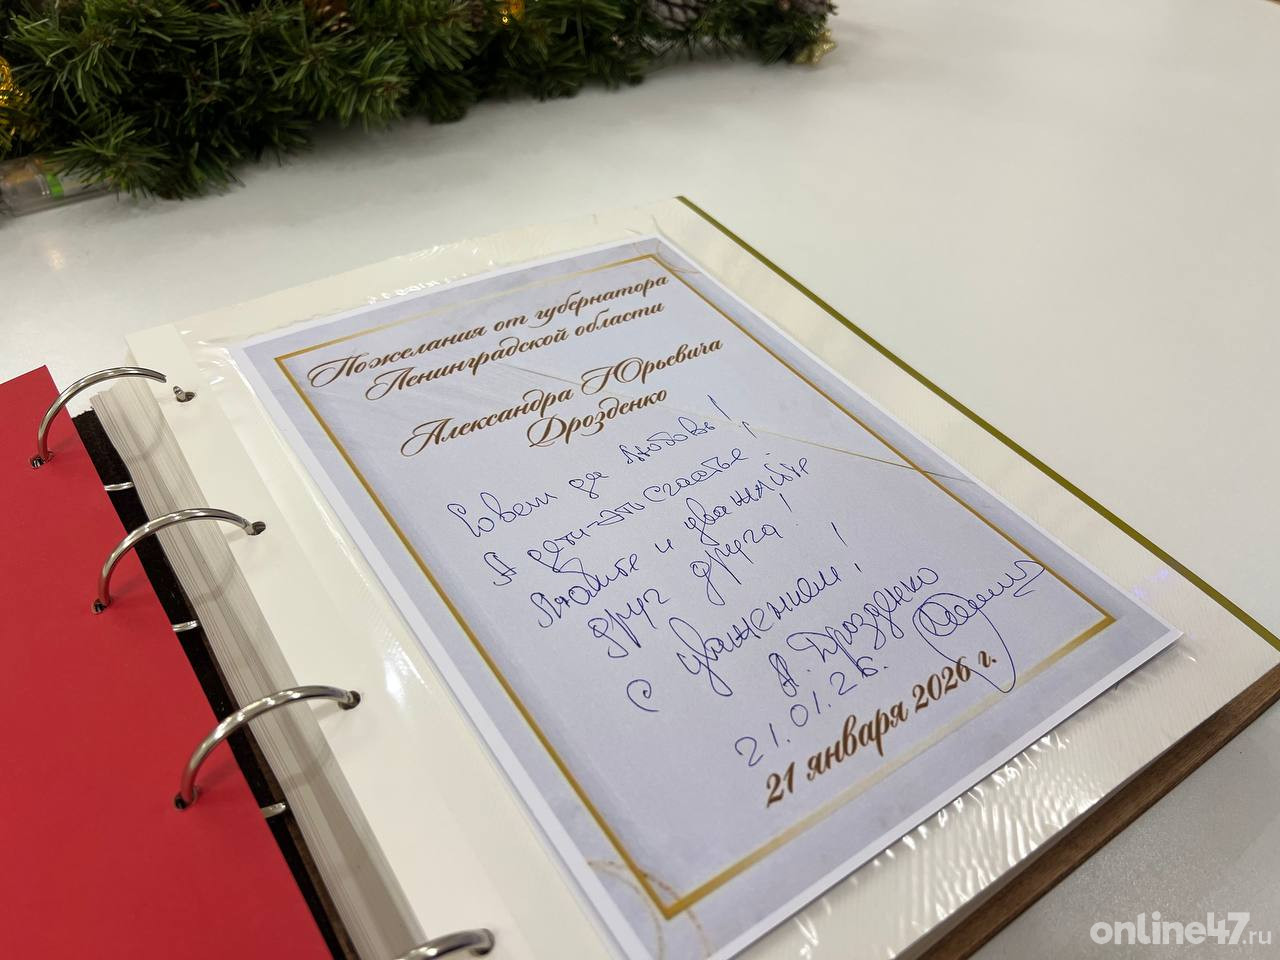 Пожелания от губернатора
Ленинградской области
Александра Юрьевича
Дрозденко
Совет да любовь!
А дети-это счастье!
Любите и уважайте
друг друга!
с уважением!
А. Дрозденко
21.01.26.
21 января 2026 г.
online47.ru